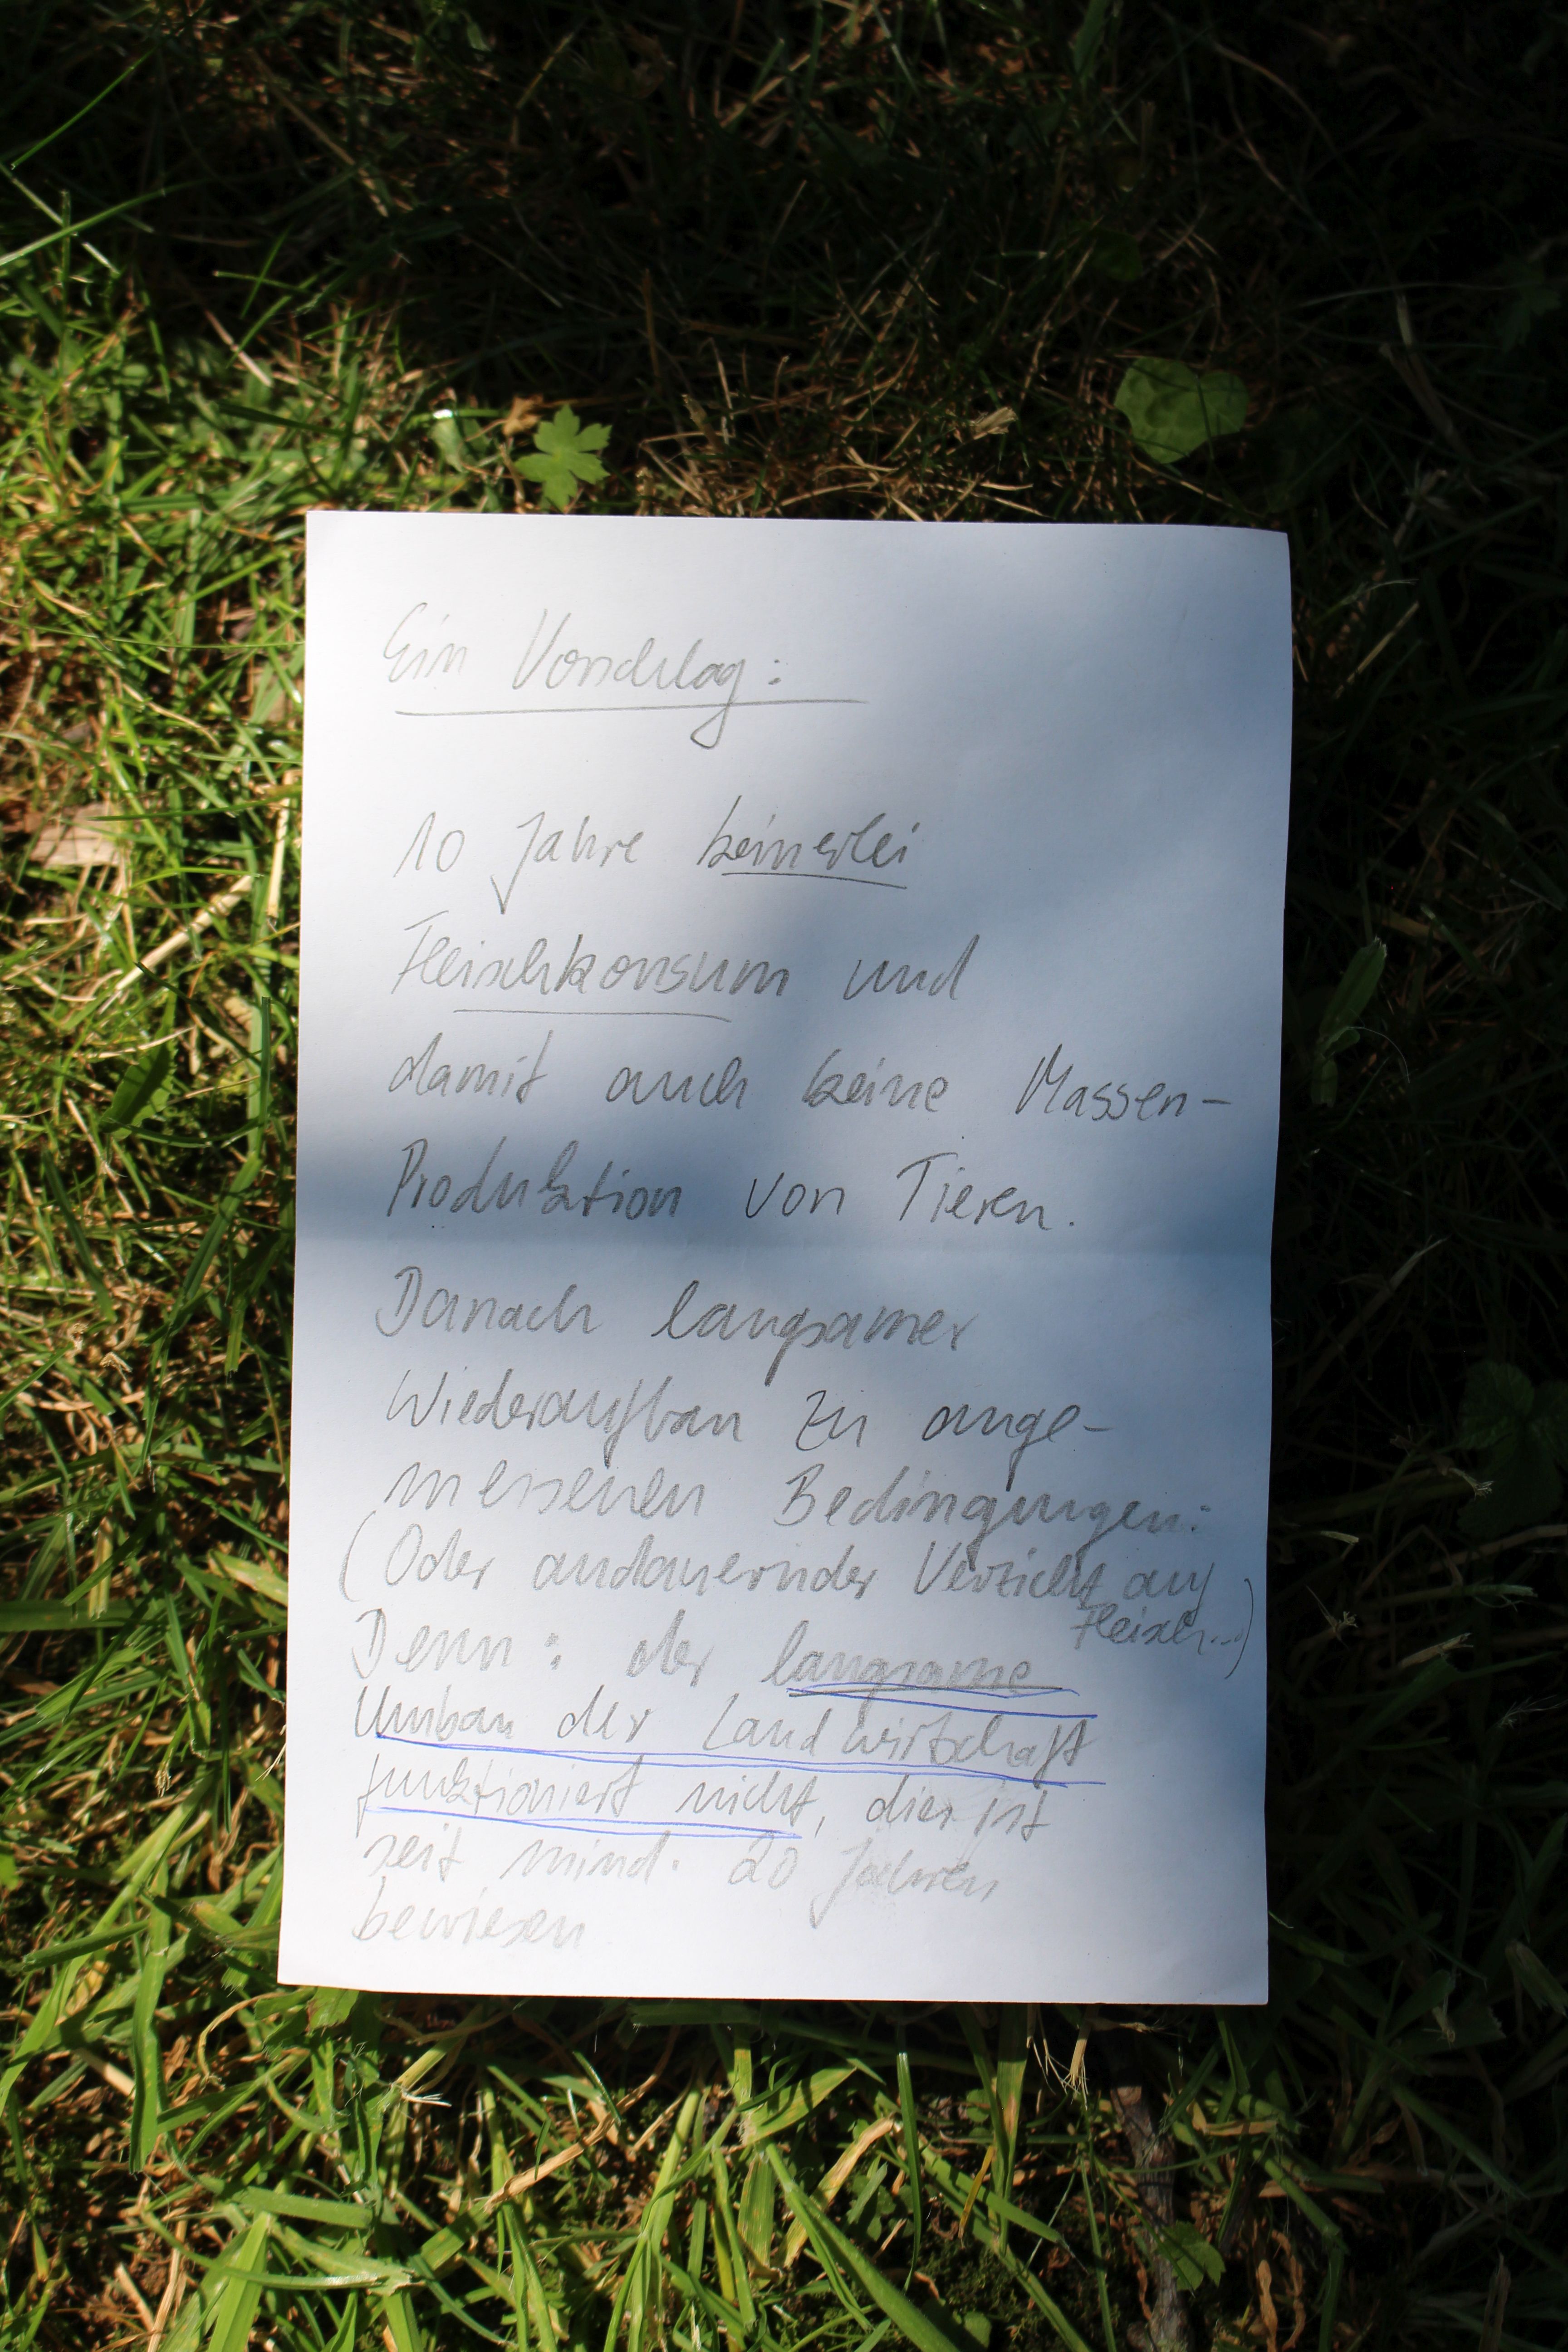 Ein Vorschlag:
10 Jahre keinerlei
Fleischkonsum und
damit auch keine Massen-
Produktion von Tieren.
Danach langsamer
Wiederaufbau zu ange-
messenen Bedingungen.
(Oder andauernder Verzicht auf
Fleisch...)
Denn: der langsame
Umbau der Landwirtschaft
funktioniert nicht, dies ist
seit mind. 20 Jahren
bewiesen